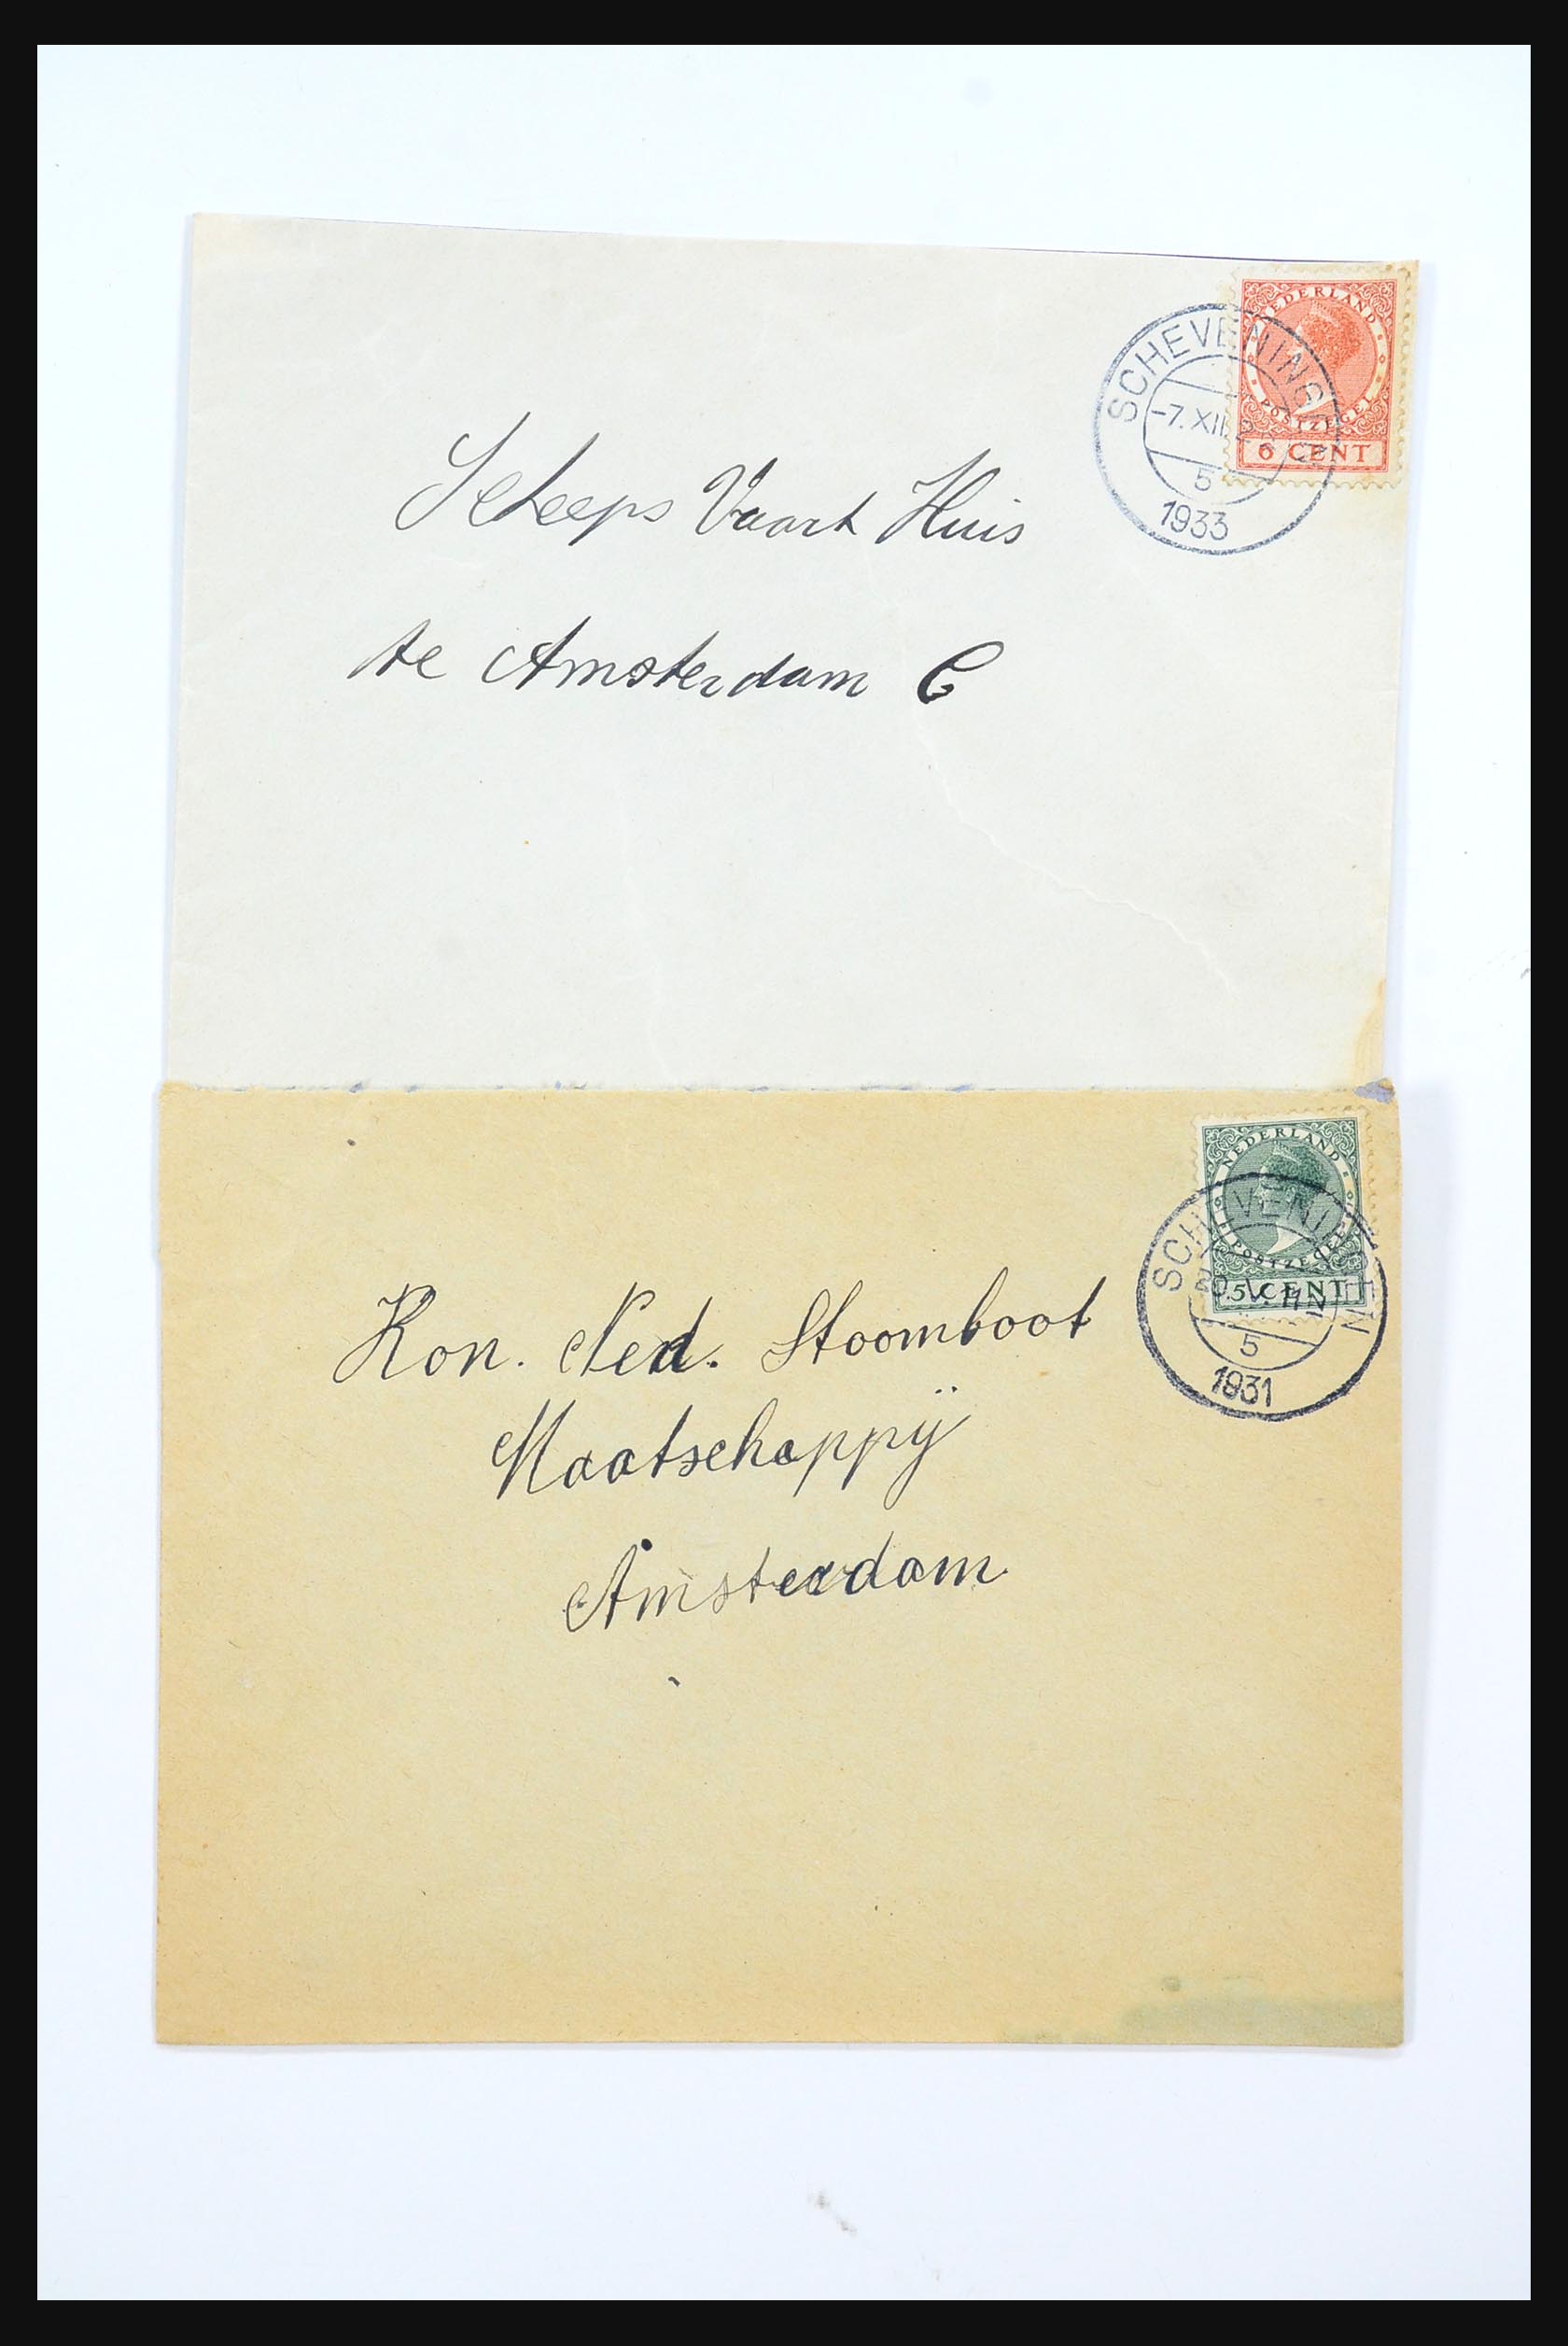 NEDERLAND
POSTZEGEL
6 CENT
SCHEVENINGEN
-7.XII. 2
5
1933
Scheeps Vaart Huis
te Amsterdam C
NEDERLAND
POSTZEGEL
5 CENT
SCHEVENINGEN
5
1931
Kon. Ned. Stoomboot
Maatschappij
Amsterdam